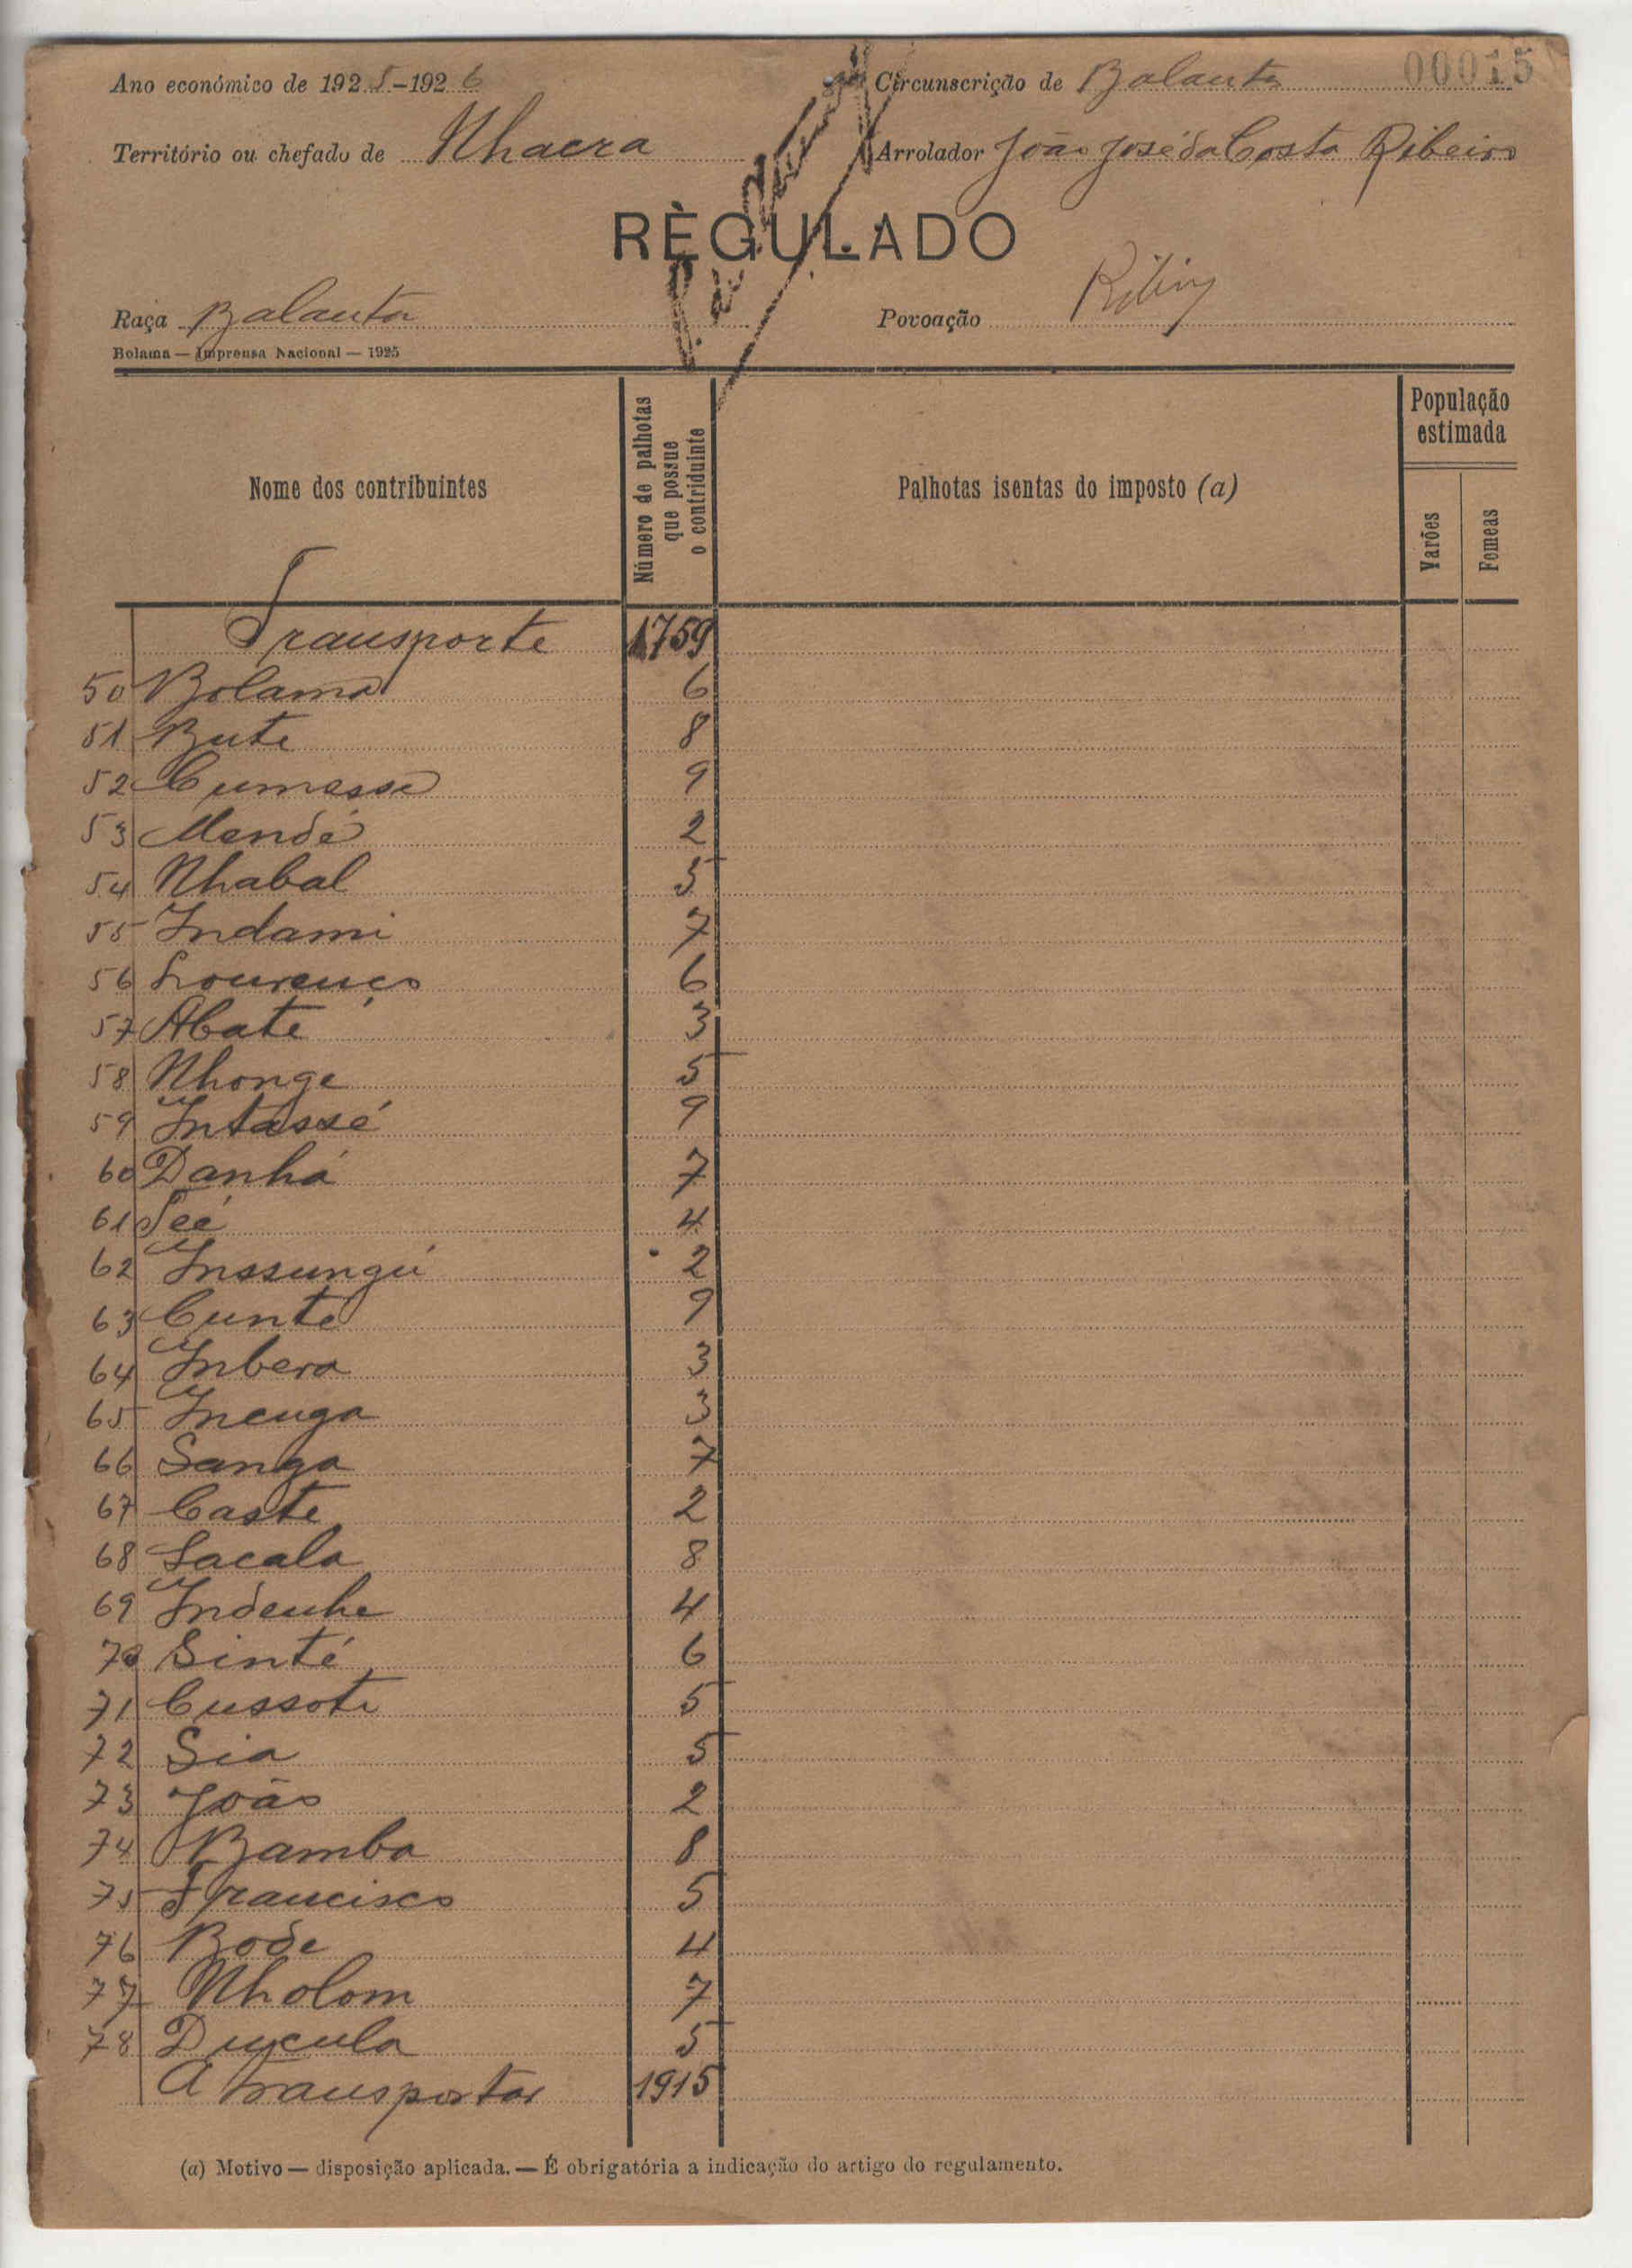 00015
Ano económico de 1925-1926 Circunscrição de Balanta
Território ou chefado de Nhacra Arrolador João José da Costa Ribeiro
RÈGULADO
Raça Balanta Povoação
Bolama — Imprensa Nacional — 1925
Nome dos contribuintes
Número de palhotas que possue o contriduinte
Palhotas isentas do imposto (a)
População estimada
Varões Femeas
Transporte 1759
50 Bolama 6
51 Bute 8
52 Cumesse 9
53 Mendé 2
54 Nhabal 5
55 Indami 7
56 Lourenço 6
57 Abate 3
58 Nhonge 5
59 Intassé 9
60 Danhá 7
61 Seé 4
62 Inssungú 2
63 Cunte 9
64 Inbera 3
65 Incuga 3
66 Sanga 7
67 Caste 2
68 Lacala 8
69 Indenhe 4
70 Sinté 6
71 Cussote 5
72 Sia 5
73 João 2
74 Bamba 8
75 Francisco 5
76 Bode 4
77 Nholom 7
78 Ducula 5
A transportar 1915
(a) Motivo — disposição aplicada. — É obrigatória a indicação do artigo do regulamento.